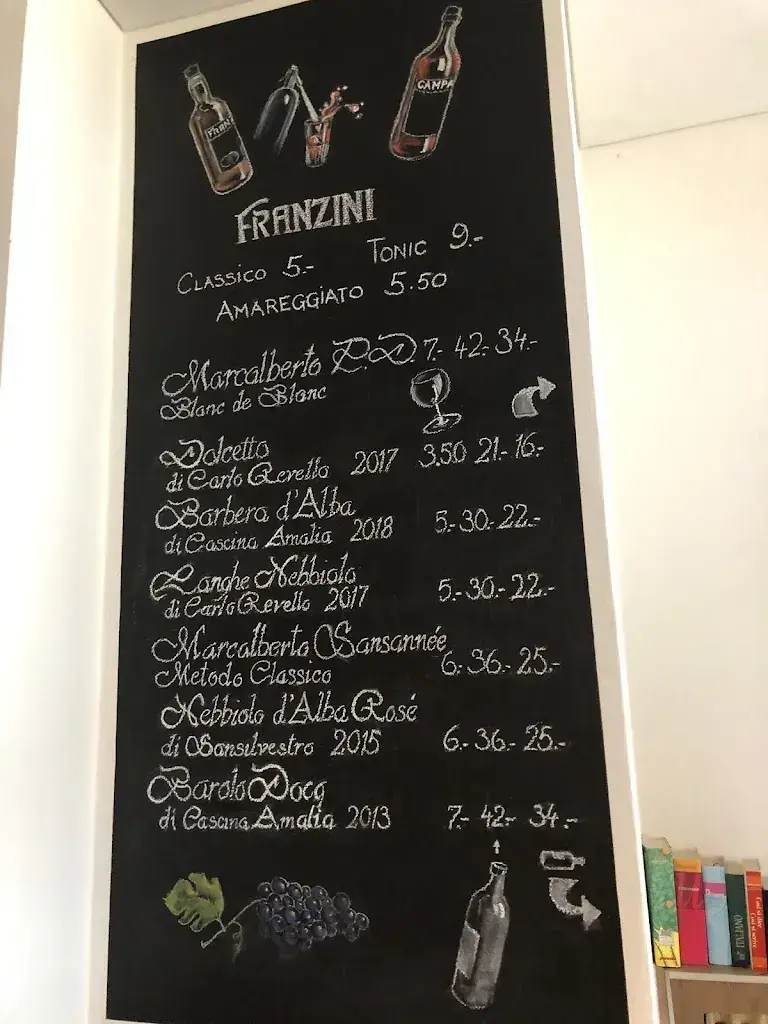 FRAN
CAMPA
FRANZINI
CLASSICO 5.- TONIC 9.-
AMAREGGIATO 5.50
Marcalberto P.D. 7.- 42.- 34.-
Blanc de Blanc
Dolcetto
di Carlo Revello 2017 3.50 21.- 16.-
Barbera d'Alba
di Cascina Amalia 2018 5.- 30.- 22.-
Langhe Nebbiolo
di Carlo Revello 2017 5.- 30.- 22.-
Marcalberto Sansannée
Metodo Classico 6.- 36.- 25.-
Nebbiolo d'Alba Rosé
di Sansilvestro 2015 6.- 36.- 25.-
Barolo Docg
di Cascina Amalia 2013 7.- 42.- 34.-
ITALIANO